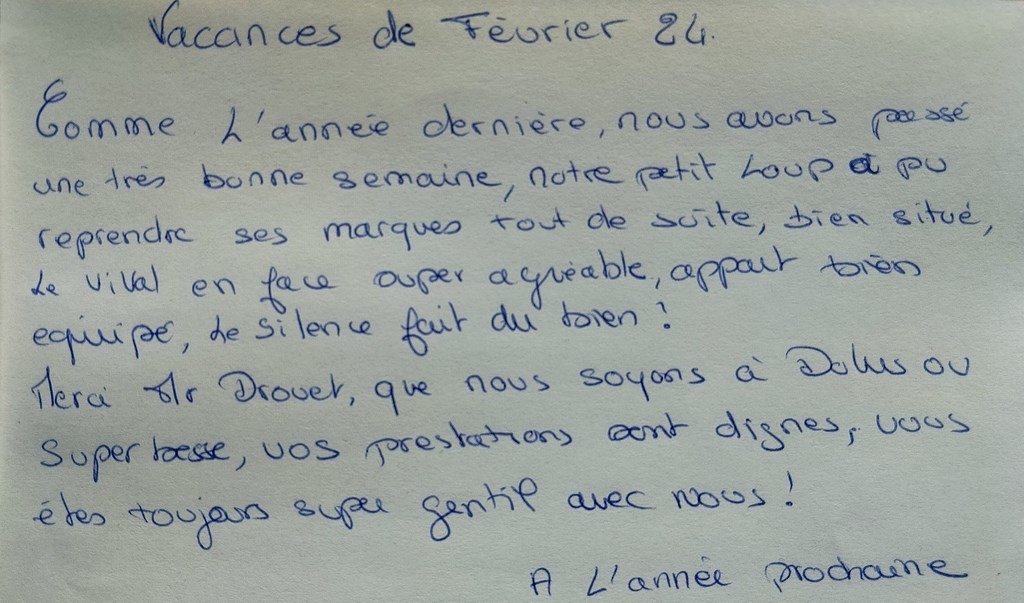 Vacances de Février 24.
Comme L'année dernière, nous avons passé
une très bonne semaine, notre petit Loup a pu
reprendre ses marques tout de suite, bien situé,
Le Vival en face super agréable, appart bien
equipé, Le silence fait du bien !
Merci Mr Drouet, que nous soyons à Dolus ou
Superbesse, vos prestations sont dignes, vous
êtes toujours super gentil avec nous !
A L'année prochaine